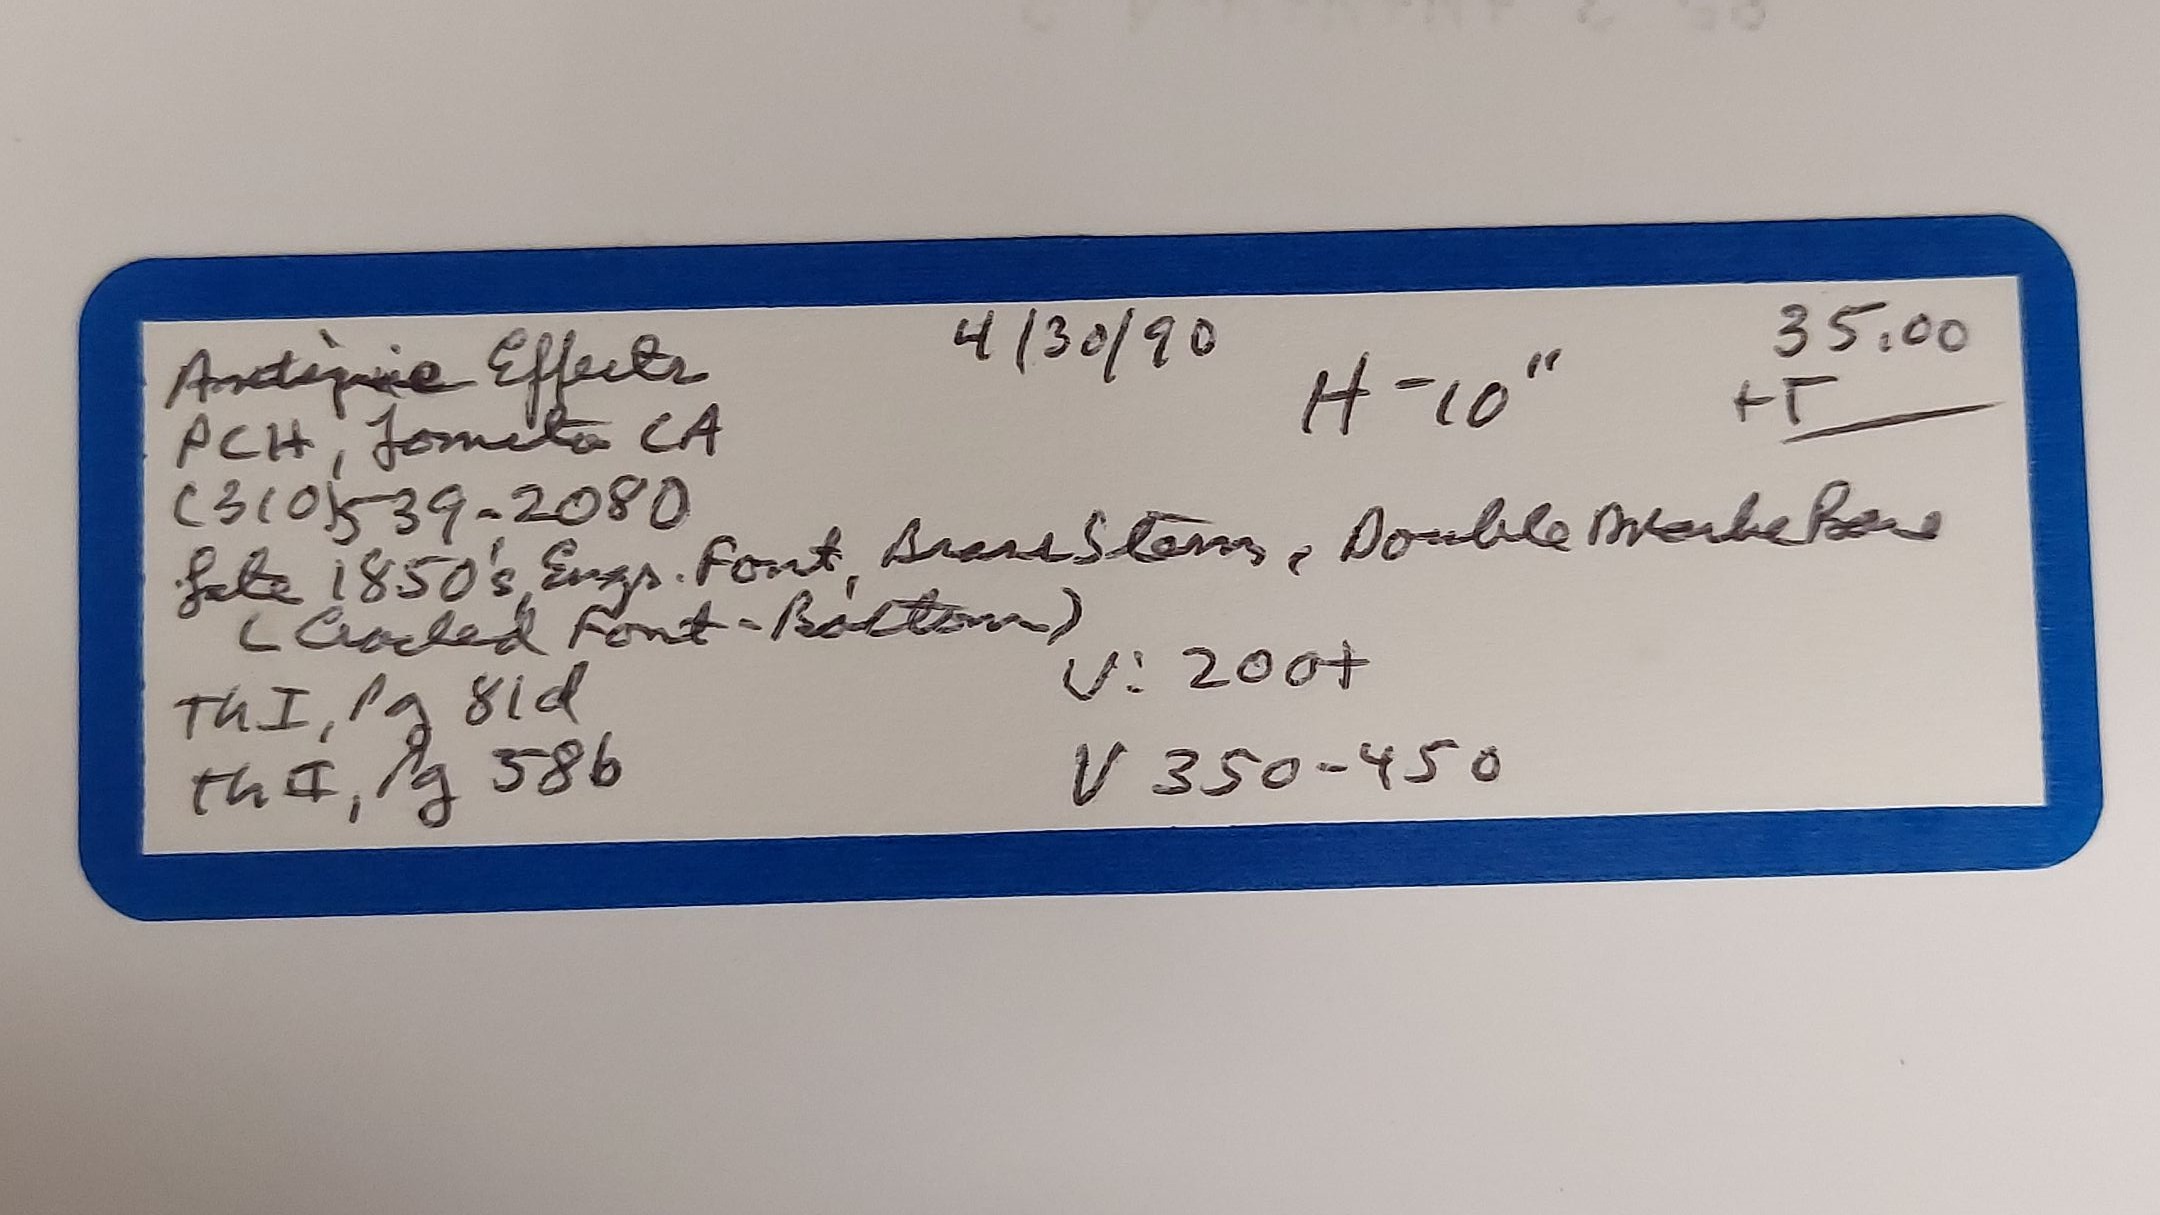 Antique Effects 4/30/90 H-10" 35.00
PCH, Lomita CA +T
(310)539-2080
Late 1850's, Engr. Font, Brass Stem, Double Marble Base
(Cracked Font-Bottom)
Th I, Pg 81d V: 200+
Th II, Pg 58b V 350-450